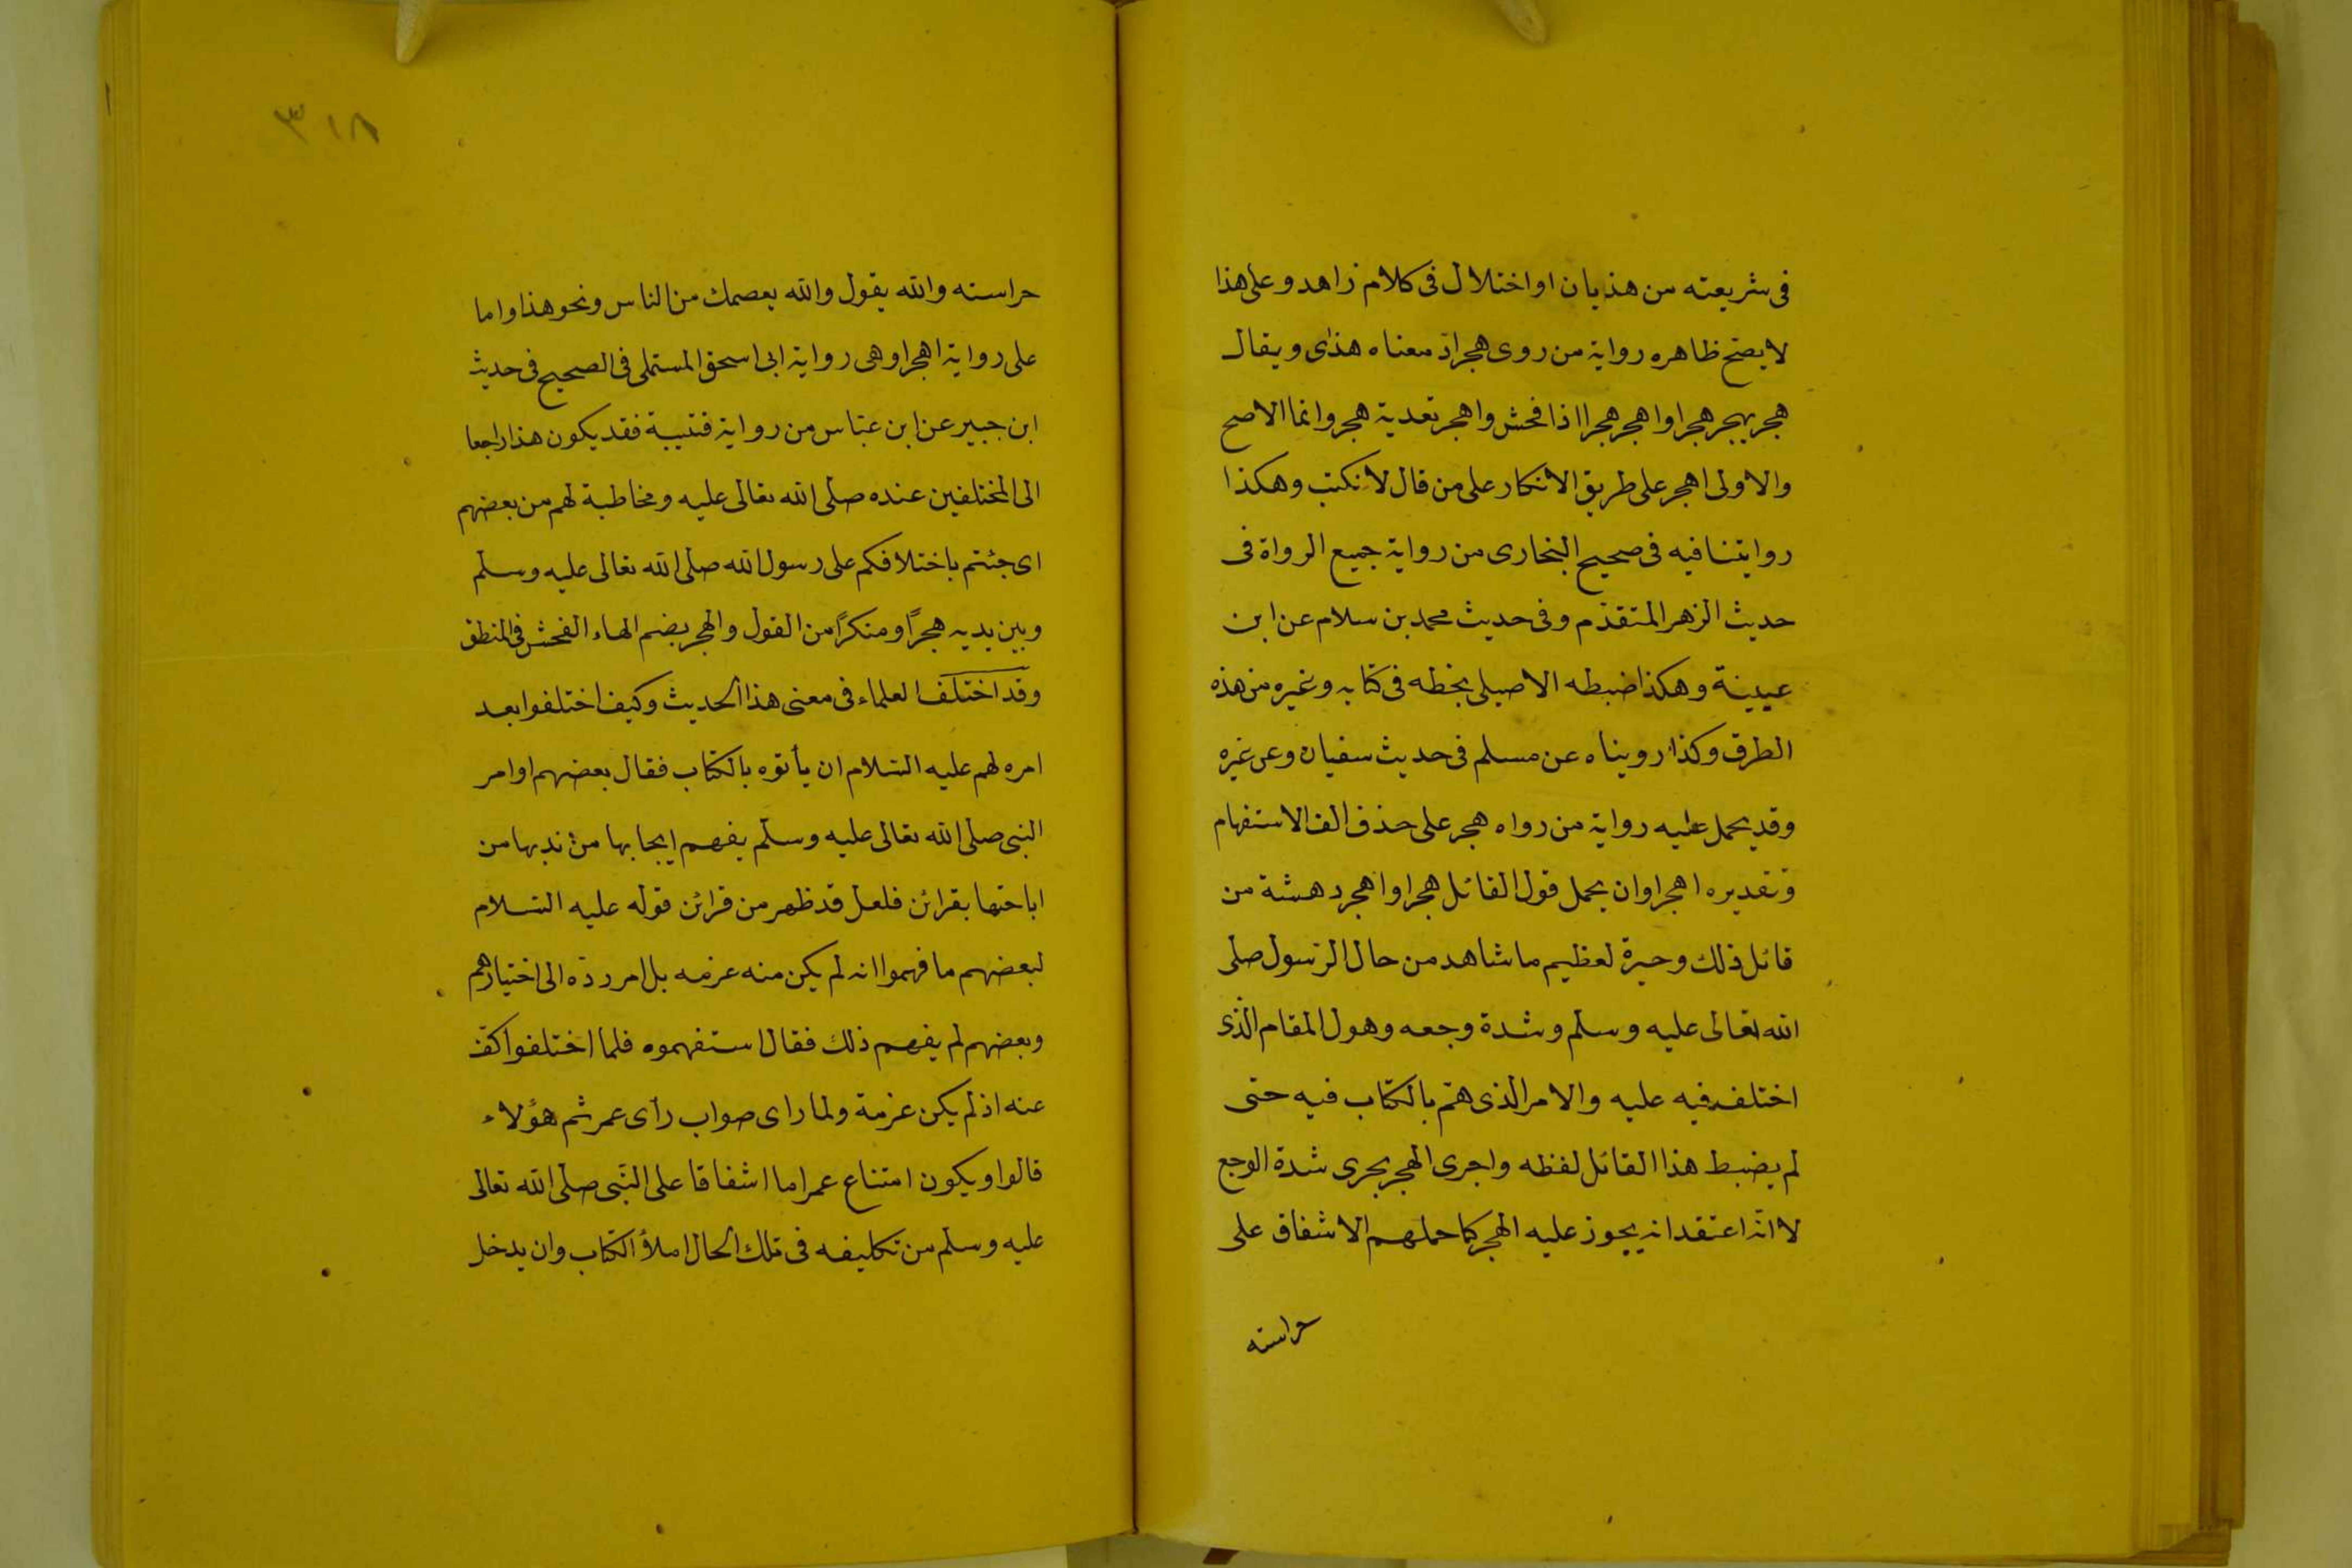 فى شريعته من هذيان او اختلال فى كلام زاهد وعلى هذا
لا يصح ظاهره رواية من روى هجر اذ معناه هذى ويقال
هجر يهجر هجرا واهجر هجرا اذا فحش واهجر تعدية هجر وانما الاصح
والاولى اهجر على طريق الانكار على من قال لا نكتب وهكذا
روايتنا فيه فى صحيح البخارى من رواية جميع الرواة فى
حديث الزهر المتقدّم وفى حديث محمد بن سلام عن ابن
عيينة وهكذا ضبطه الاصيلى بخطه فى كتابه وغيره من هذه
الطرق وكذا رويناه عن مسلم فى حديث سفيان وعن غيره
وقد يحمل عليه رواية من رواه هجر على حذف الف الاستفهام
وتقديره اهجر او ان يحمل قول القائل هجرا واهجر دهشة من
قائل ذلك وحيرة لعظيم ما شاهد من حال الرّسول صلى
الله تعالى عليه وسلّم وشدة وجعه وهول المقام الّذى
اختلف فيه عليه والامر الّذى همّ بالكتاب فيه حتى
لم يضبط هذا القائل لفظه واجرى الهجر مجرى شدة الوجع
لا انّه اعتقد انه يجوز عليه الهجر كما حملهم الاشفاق على
حراسته
٣١٨
حراسته والله يقول والله يعصمك من الناس ونحو هذا واما
على رواية اهجرا وهى رواية ابى اسحق المستملى فى الصحيح فى حديث
ابن جبير عن ابن عبّاس من رواية قتيبة فقد يكون هذا راجعا
الى المختلفين عنده صلّى الله تعالى عليه ومخاطبة لهم من بعضهم
اى جئتم باختلافكم على رسول الله صلّى الله تعالى عليه وسلّم
وبين يديه هجرًا ومنكرًا من القول والهجر بضم الهاء الفحش فى المنطق
وقد اختلف العلماء فى معنى هذا الحديث وكيف اختلفوا بعد
امره لهم عليه السّلام ان يأتوه بالكتاب فقال بعضهم اوامر
النبى صلّى الله تعالى عليه وسلّم يفهم ايجابها من ندبها من
اباحتها بقرائن فلعل قد ظهر من قرائن قوله عليه السّلام
لبعضهم ما فهموا انه لم يكن منه عزمه بل امر ردّه الى اختيارهم
وبعضهم لم يفهم ذلك فقال استفهموه فلما اختلفوا كفّ
عنه اذ لم يكن عزمة ولما راى صواب رأى عمر ثم هؤلاء
قالوا ويكون امتناع عمر اما اشفاقا على النّبى صلّى الله تعالى
عليه وسلّم من تكليفه فى تلك الحال املاؤ الكتاب وان يدخل